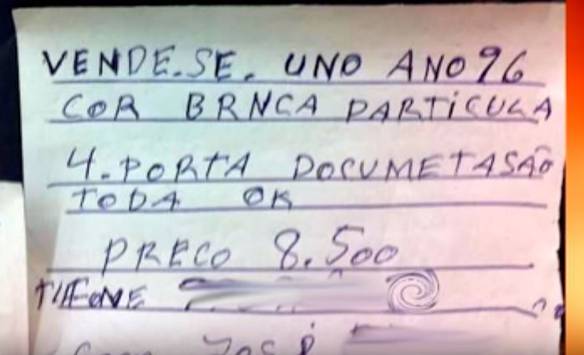 VENDE.SE. UNO ANO 96
COR BRNCA PARTiCULA
4.PORTA DOCUMETASÃO
TODA OK
PRECO 8.500